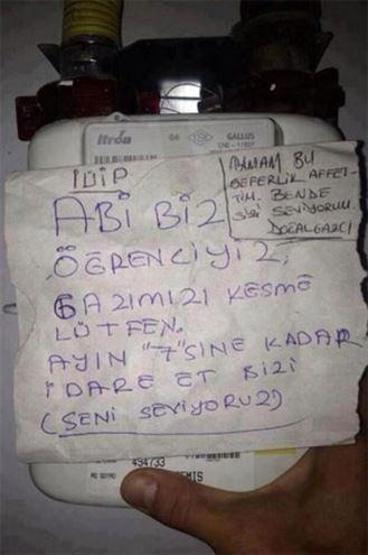 itron G6 GALLUS
ABİ BİZ
ÖĞRENCİYİZ,
GAZIMIZI KESME
LÜTFEN.
AYIN "7"SİNE KADAR
İDARE ET BİZİ
(SENİ SEVİYORUZ)
TAMAM BU
SEFERLİK AFFET-
TİM. BENDE
SİZİ SEVİYORUM.
DOĞALGAZCI
494733